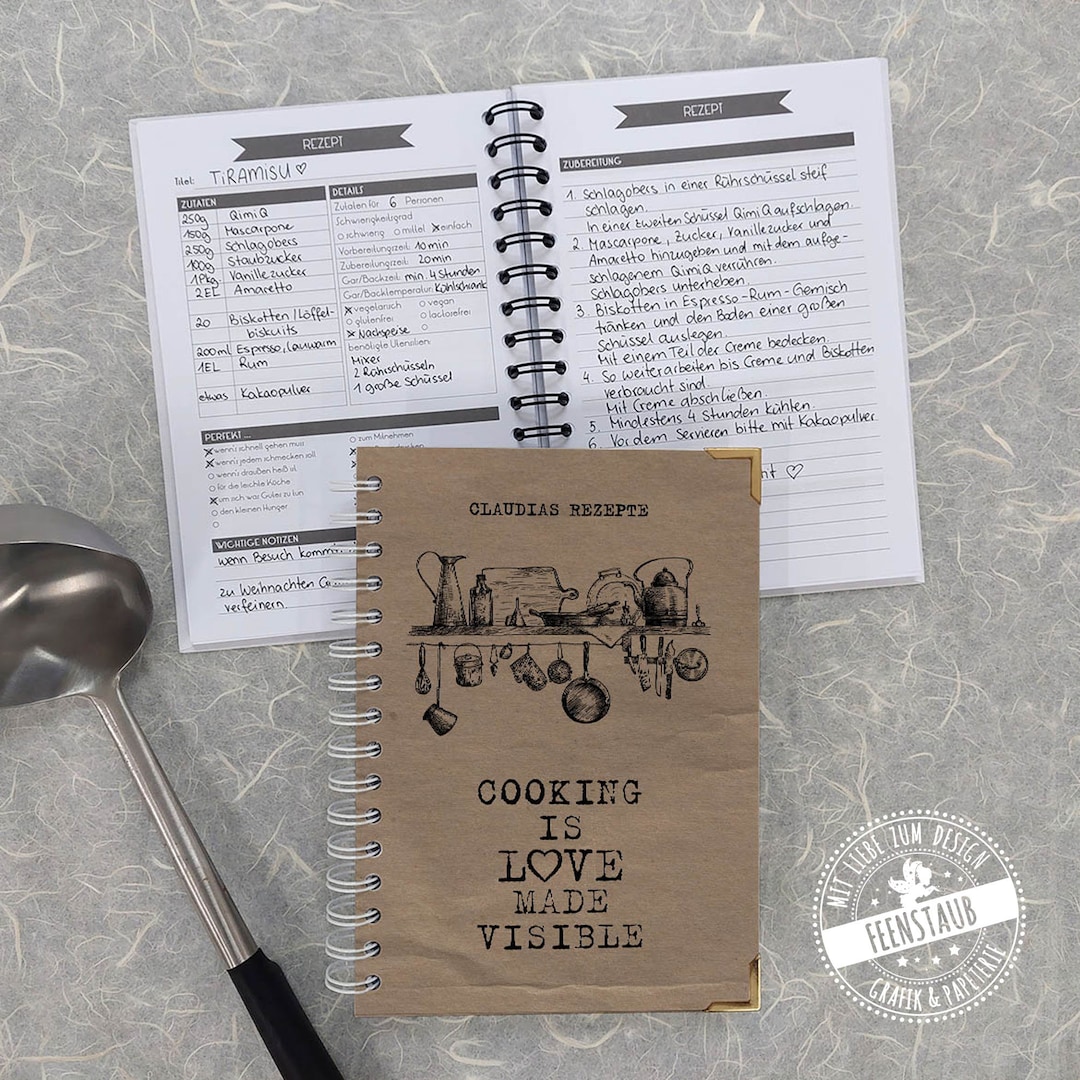 REZEPT
Titel: TiRAMiSU ♡
ZUTATEN
250g QimiQ
150g Mascarpone
250g Schlagobers
100g Staubzucker
1Pkg Vanillezucker
2EL Amaretto
20 Biskotten / Löffel-
biskuits
200ml Espresso, lauwarm
1EL Rum
etwas Kakaopulver
DETAILS
Zutaten für 6 Personen
Schwierigkeitsgrad
○ schwierig ○ mittel ☒ einfach
Vorbereitungszeit: 10min
Zubereitungszeit: 20min
Gar/Backzeit: min. 4 Stunden
Gar/Backtemperatur: Kühlschrank
☒ vegetarisch ○ vegan
○ glutenfrei ○ lactosefrei
☒ Nachspeise ○
benötigte Utensilien:
Mixer
2 Rührschüsseln
1 große Schüssel
PERFEKT ...
☒ wenn's schnell gehen muss
☒ wenn's jedem schmecken soll
○ wenn's draußen heiß ist
○ für die leichte Küche
☒ um sich was Gutes zu tun
○ den kleinen Hunger
○
○ zum Mitnehmen
WICHTIGE NOTIZEN
wenn Besuch kommt
zu Weihnachten
verfeinern
REZEPT
ZUBEREITUNG
1. Schlagobers in einer Rührschüssel steif
schlagen.
In einer zweiten Schüssel QimiQ aufschlagen.
2. Mascarpone, Zucker, Vanillezucker und
Amaretto hinzugeben und mit dem aufge-
schlagenem QimiQ verrühren.
Schlagobers unterheben.
3. Biskotten in Espresso-Rum-Gemisch
tränken und den Boden einer großen
Schüssel auslegen.
Mit einem Teil der Creme bedecken.
4. So weiterarbeiten bis Creme und Biskotten
verbraucht sind.
Mit Creme abschließen.
5. Mindestens 4 Stunden kühlen.
6. Vor dem Servieren bitte mit Kakaopulver
♡
CLAUDIAS REZEPTE
COOKING
IS
L♡VE
MADE
VISIBLE
MIT LIEBE ZUM DESIGN
FEENSTAUB
GRAFIK & PAPETERIE